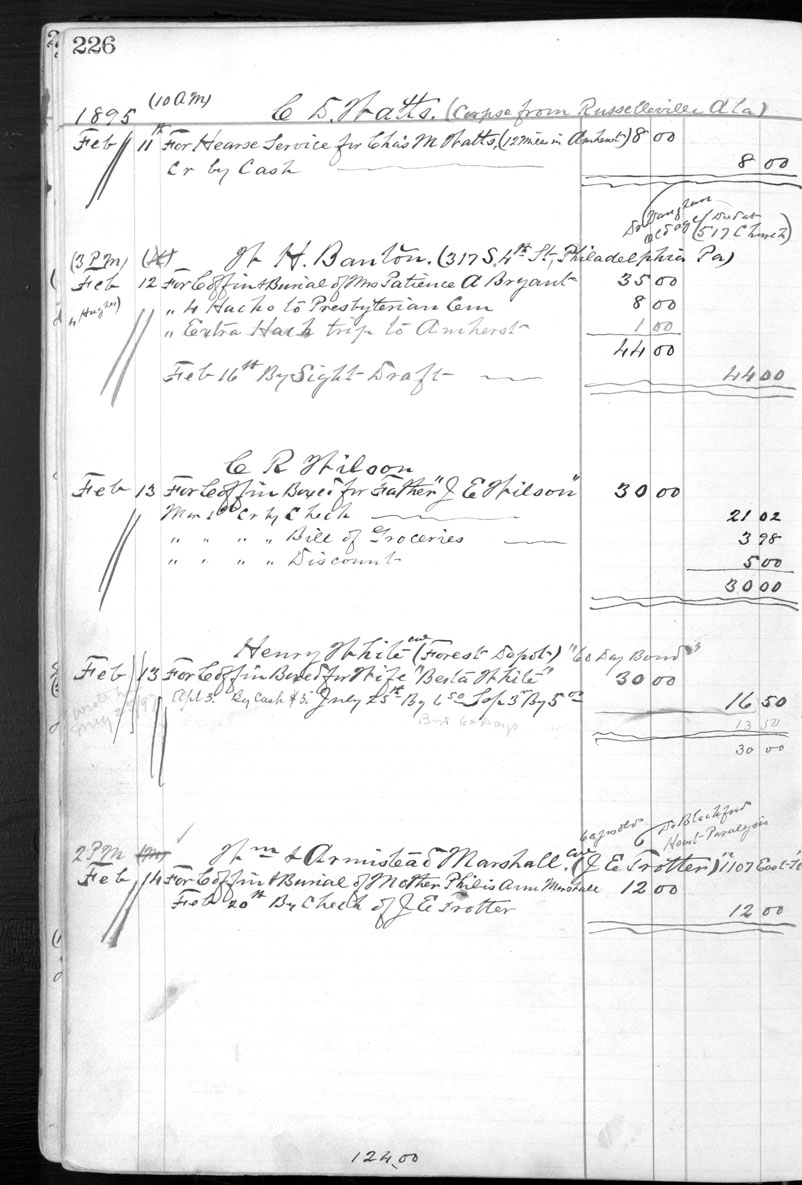 226
1895 (10 AM) C D. Watts. (Corpse from Russelleville Ala)
Feb 11th For Hearse Service for Chas M Watts, (12 miles in Amherst) 8 00
Cr by Cash 8 00
Dr Vaughan
old age (Died at 517 Church)
(3 PM) (W) W H. Banton. (317 S. 4th St, Philadelphia Pa)
Feb 12 For Coffin & Burial of Mrs Patience A Bryant 35 00
4 Hughes) " 4 Hacks to Presbyterian Cem 8 00
" Extra Hack trip to Amherst 1 00
44 00
Feb 16th By Sight Draft 44 00
C R Wilson
Feb 13 For Coffin Boxed for Father "J E Wilson" 30 00
Mar Cr by Check 21 02
" " " " Bill of Groceries 3 98
" " " " Discount 5 00
30 00
Henry White col (Forest Depot) "60 Day Bond"
Feb 13 For Coffin Boxed for Wife "Berta White" 30 00
Apl 3. By Cash $5. July 25th By 6 50 Sep 3rd By 5 00 16 50
13 50
30 00
Dr Blackford
Heart Paralysis
2 PM Wm & Armistead Marshall. col (J E Trotter) 1107 East
Feb 14 For Coffin & Burial of Mother Philis Ann Marshall 12 00
Feb 20th By Check of J E Trotter 12 00
124.00